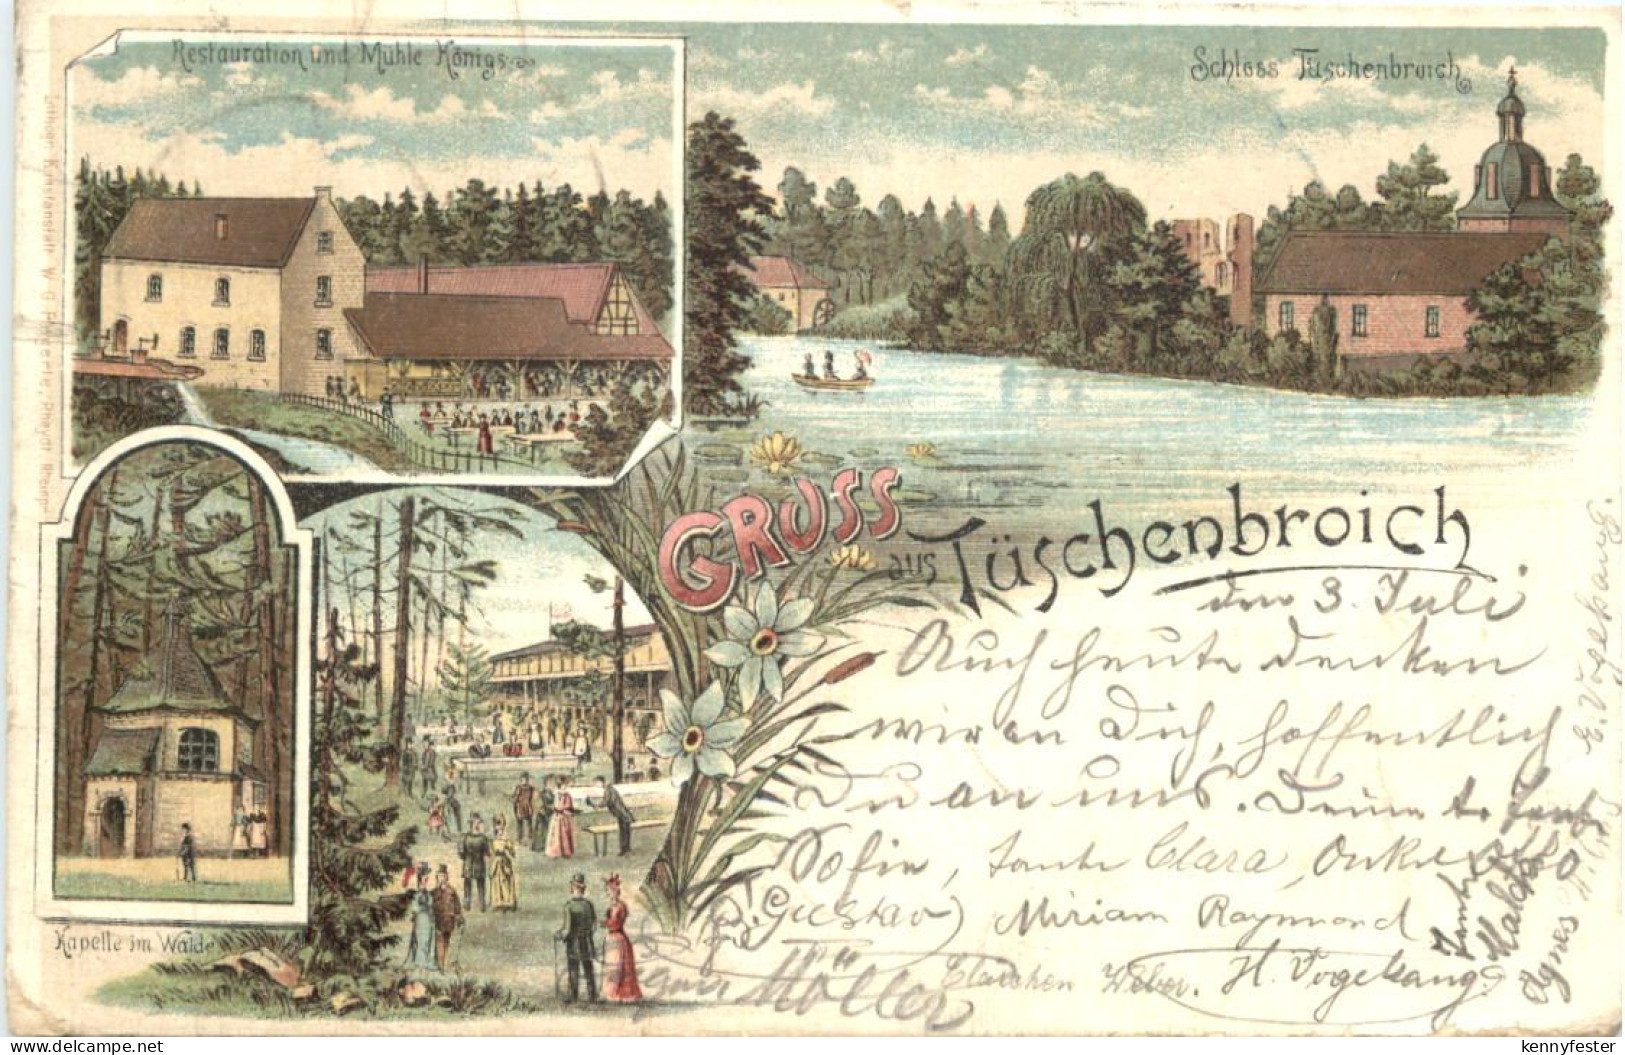 Restauration und Mühle Königs
Schloss Tüschenbroich
Lithogr. Kunstanstalt W. G. Rheydt (Rheinpr.
GRUSS
aus Tüschenbroich
Kapelle im Walde
den 3. Juli
Auch heute denken
wir an Dich, hoffentlich
Du an uns. Deine l. Tante
Sofie, Tante Clara, Onkel
Gustav) Miriam Raymond
Möller Clärchen Weber. H. Vogelsang
E. Vogelsang.
Agnes
delcampe.net
kennyfester